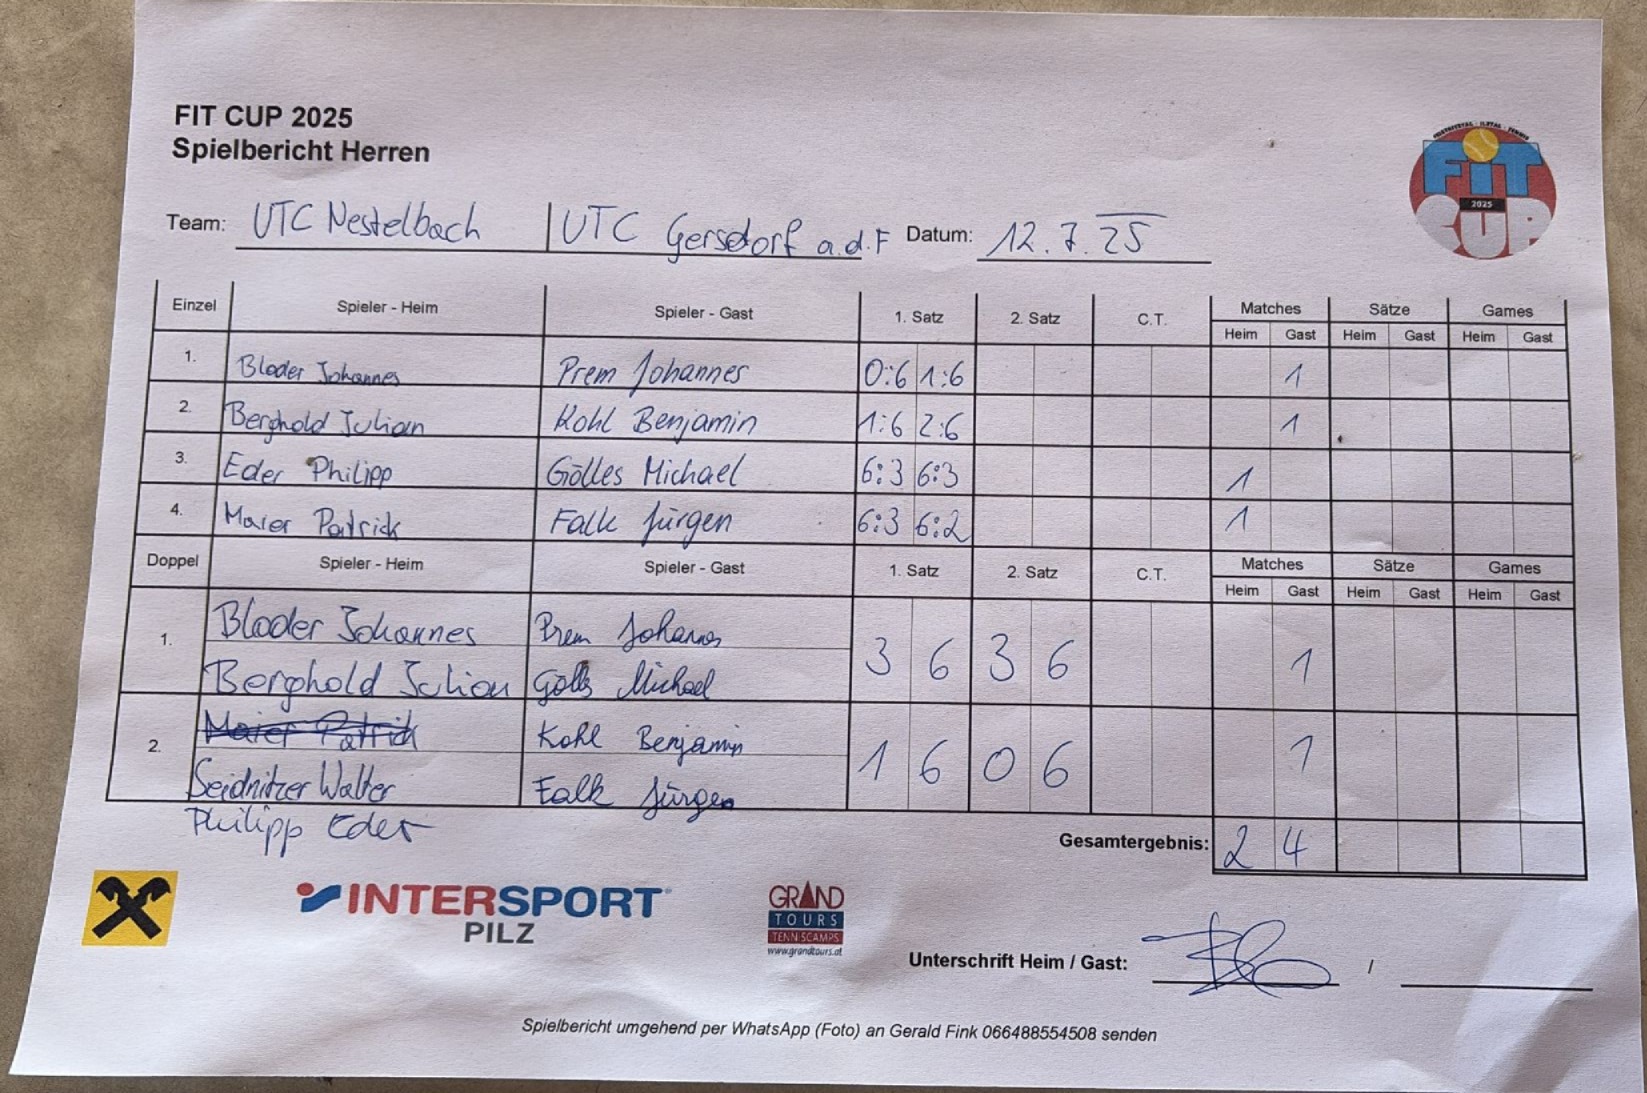 FIT CUP 2025
Spielbericht Herren
FELDBACHTAL - ILZTAL - TENNIS
FiT
2025
CUP
Team: UTC Nestelbach | UTC Gersdorf a.d.F Datum: 12.7.25
Einzel Spieler - Heim Spieler - Gast 1. Satz 2. Satz C.T. Matches Sätze Games
Heim Gast Heim Gast Heim Gast
1. Bloder Johannes Prem Johannes 0:6 1:6 1
2. Berghold Julian Kohl Benjamin 1:6 2:6 1
3. Eder Philipp Gölles Michael 6:3 6:3 1
4. Maier Patrick Falk Jürgen 6:3 6:2 1
Doppel Spieler - Heim Spieler - Gast 1. Satz 2. Satz C.T. Matches Sätze Games
Heim Gast Heim Gast Heim Gast
Bloder Johannes Prem Johannes
1. 3 6 3 6 1
Berghold Julian Gölls Michael
Maier Patrick Kohl Benjamin
2. 1 6 0 6 1
Seidnitzer Walter Falk Jürgen
Philipp Eder
Gesamtergebnis: 2 4
INTERSPORT
PILZ
GRAND
TOURS
TENNISCAMPS
www.grandtours.at
Unterschrift Heim / Gast: /
Spielbericht umgehend per WhatsApp (Foto) an Gerald Fink 066488554508 senden